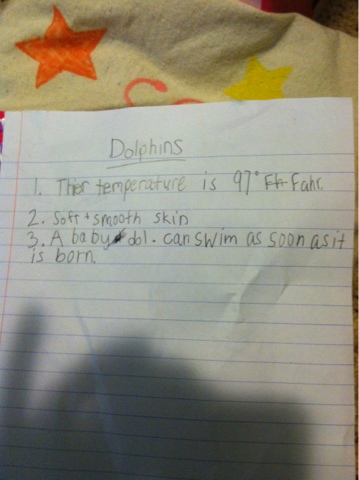 Dolphins
1. Thier temperature is 97° Fh Fahr.
2. Soft + smooth skin
3. A baby dol. can swim as soon as it
is born.